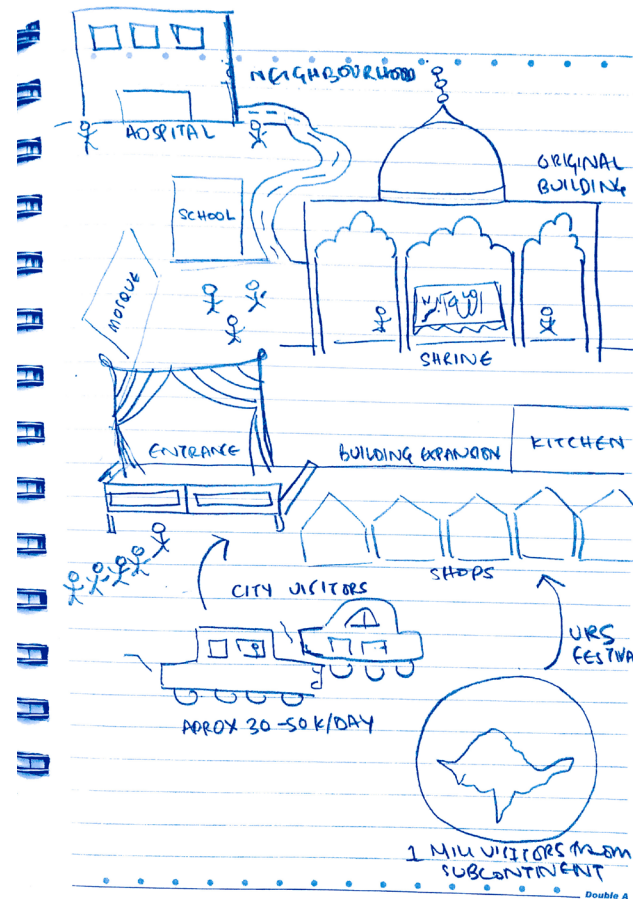 NEIGHBOURHOOD
HOSPITAL
ORIGINAL
BUILDING
SCHOOL
MOSQUE
SHRINE
ENTRANCE
BUILDING EXPANSION
KITCHEN
SHOPS
CITY VISITORS
URS
FESTIVA
APROX 30-50K/DAY
1 MILL VISITORS FROM
SUBCONTINENT
Double A